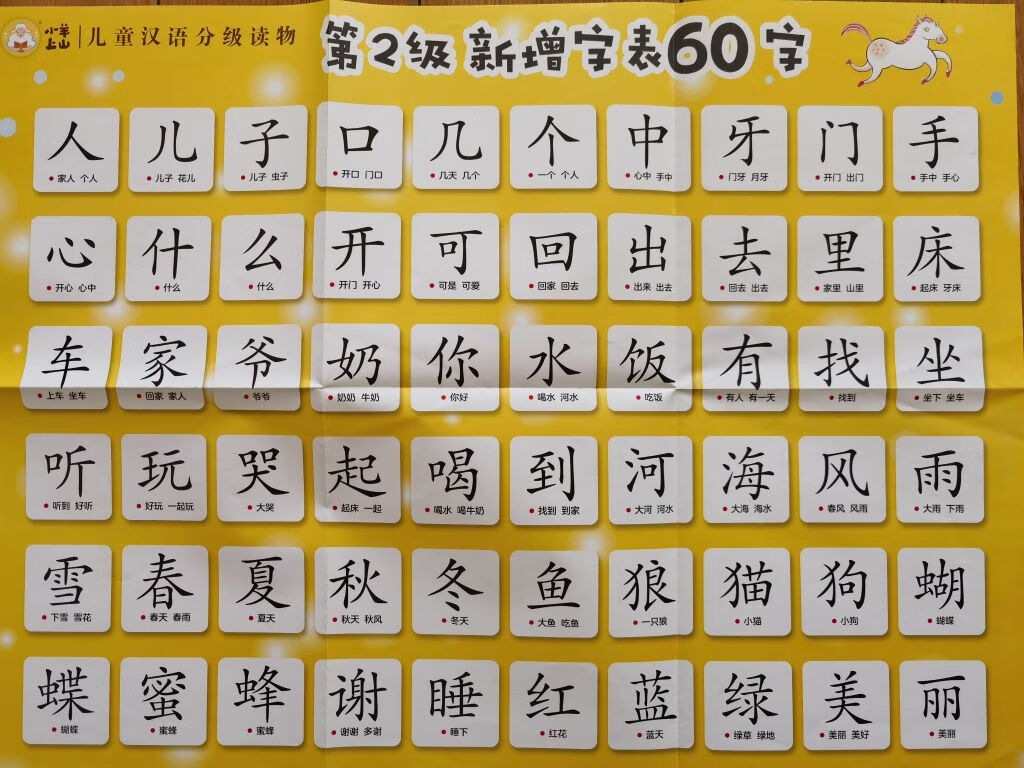 小羊上山 儿童汉语分级读物 第2级 新增字表60字
人 儿 子 口 几 个 中 牙 门 手
家人 个人 儿子 花儿 儿子 虫子 开口 门口 几天 几个 一个 个人 心中 手中 门牙 月牙 开门 出门 手中 手心
心 什 么 开 可 回 出 去 里 床
开心 心中 什么 什么 开门 开心 可是 可爱 回家 回去 出来 出去 回去 出去 家里 山里 起床 牙床
车 家 爷 奶 你 水 饭 有 找 坐
上车 坐车 回家 家人 爷爷 奶奶 牛奶 你好 喝水 河水 吃饭 有人 有一天 找到 坐下 坐车
听 玩 哭 起 喝 到 河 海 风 雨
听到 好听 好玩 一起玩 大哭 起床 一起 喝水 喝牛奶 找到 到家 大河 河水 大海 海水 春风 风雨 大雨 下雨
雪 春 夏 秋 冬 鱼 狼 猫 狗 蝴
下雪 雪花 春天 春雨 夏天 秋天 秋风 冬天 大鱼 吃鱼 一只狼 小猫 小狗 蝴蝶
蝶 蜜 蜂 谢 睡 红 蓝 绿 美 丽
蝴蝶 蜜蜂 蜜蜂 谢谢 多谢 睡下 红花 蓝天 绿草 绿地 美丽 美好 美丽